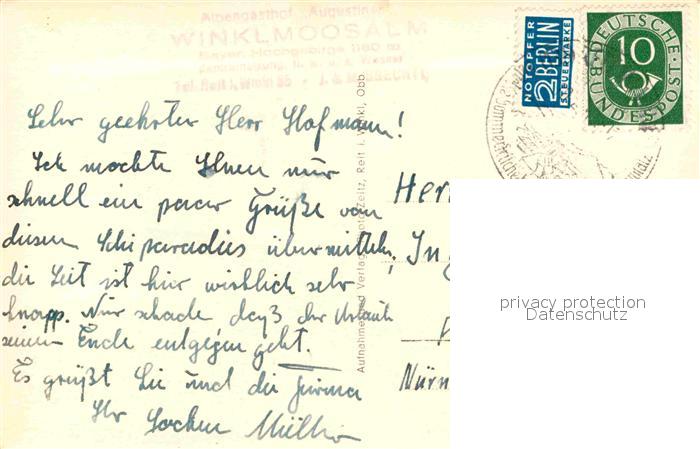 Alpengasthof "Augustiner"
WINKLMOOSALM
Bayer. Hochgebirge 1160 m
Tel. Reit i. Winkl 85
NOTOPFER
2 BERLIN
STEUERMARKE
DEUTSCHE
10
BUNDESPOST
Sehr geehrter Herr Hofmann!
Ich möchte Ihnen nur
schnell ein paar Grüße von
diesem Schiparadies übermitteln,
die Zeit ist hier wirklich sehr
knapp. Nur schade dayß der Urlaub
seinem Ende entgegen geht.
Es grüßt Sie und die Firma
Ihr Jochen Müller
Aufnahme und Verlag Zeitz, Reit i. Winkl, Obb.
Her
Ing
Nürn
privacy protection
Datenschutz